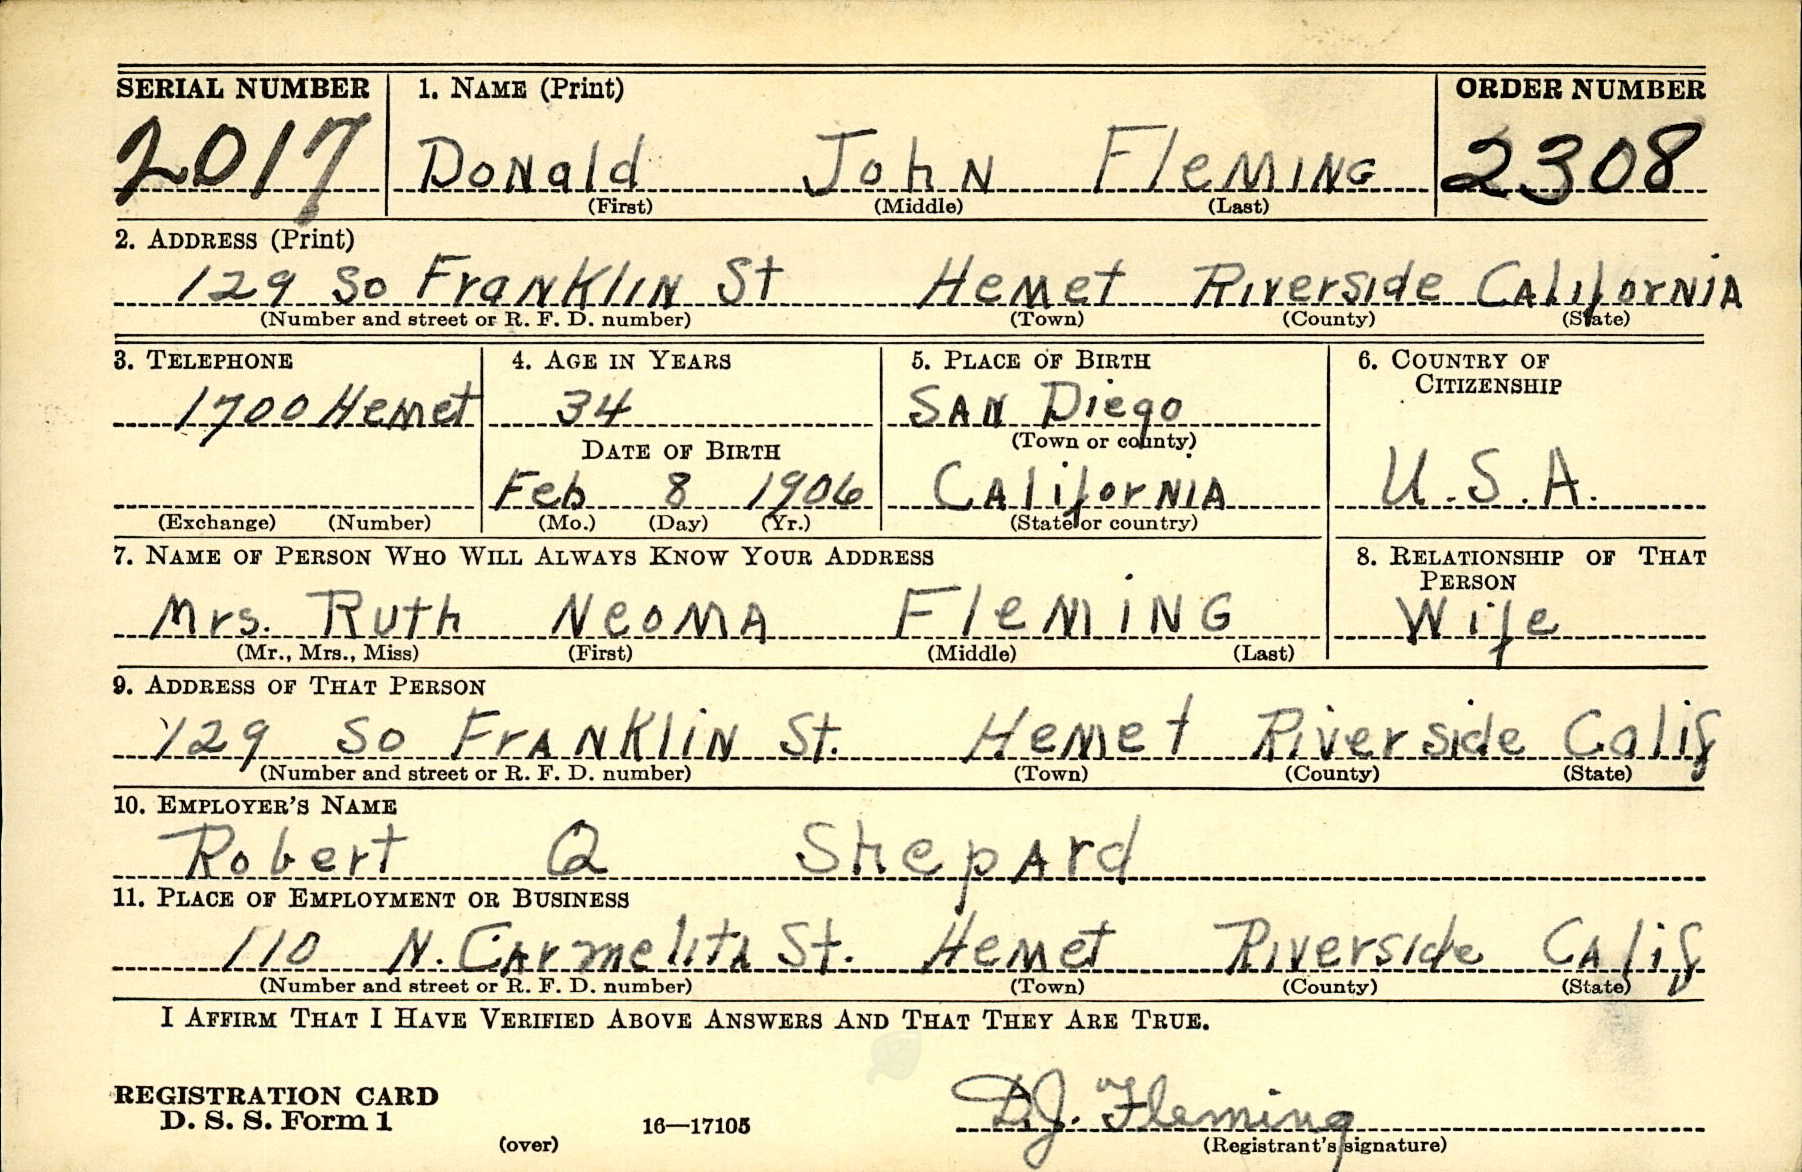 SERIAL NUMBER 1. NAME (Print) ORDER NUMBER
2017 Donald John Fleming 2308
(First) (Middle) (Last)
2. ADDRESS (Print)
129 So Franklin St Hemet Riverside California
(Number and street or R. F. D. number) (Town) (County) (State)
3. TELEPHONE 4. AGE IN YEARS 5. PLACE OF BIRTH 6. COUNTRY OF
CITIZENSHIP
1700 Hemet 34 San Diego
DATE OF BIRTH (Town or county)
Feb 8 1906 California U.S.A.
(Exchange) (Number) (Mo.) (Day) (Yr.) (State or country)
7. NAME OF PERSON WHO WILL ALWAYS KNOW YOUR ADDRESS 8. RELATIONSHIP OF THAT
PERSON
Mrs. Ruth Neoma Fleming Wife
(Mr., Mrs., Miss) (First) (Middle) (Last)
9. ADDRESS OF THAT PERSON
129 So Franklin St. Hemet Riverside Calif
(Number and street or R. F. D. number) (Town) (County) (State)
10. EMPLOYER'S NAME
Robert Q Shepard
11. PLACE OF EMPLOYMENT OR BUSINESS
110 N. Carmelita St. Hemet Riverside Calif
(Number and street or R. F. D. number) (Town) (County) (State)
I AFFIRM THAT I HAVE VERIFIED ABOVE ANSWERS AND THAT THEY ARE TRUE.
REGISTRATION CARD
D. S. S. Form 1 16—17105 D.J. Fleming
(over) (Registrant's signature)